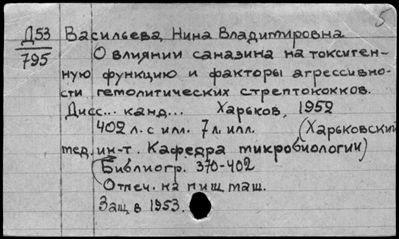 5
Д53
795
Васильева, Нина Владимировна
О влиянии саназина на токсиген-
ную функцию и факторы агрессивно-
сти гемолитических стрептококков.
Дисс... канд... Харьков, 1952
402 л. с илл. 7 л. илл. (Харьковский
мед. ин-т. Кафедра микробиологии)
Библиогр. 370-402
Отпеч. на пиш. маш.
Защ. в 1953.